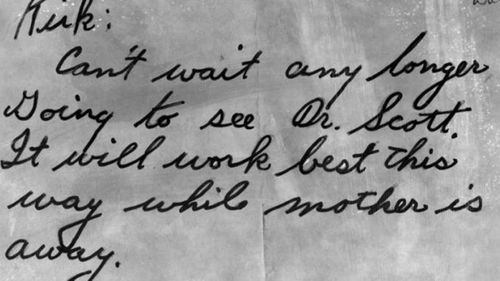 Kirk:
Can't wait any longer
Going to see Dr. Scott.
It will work best this
way while mother is
away.